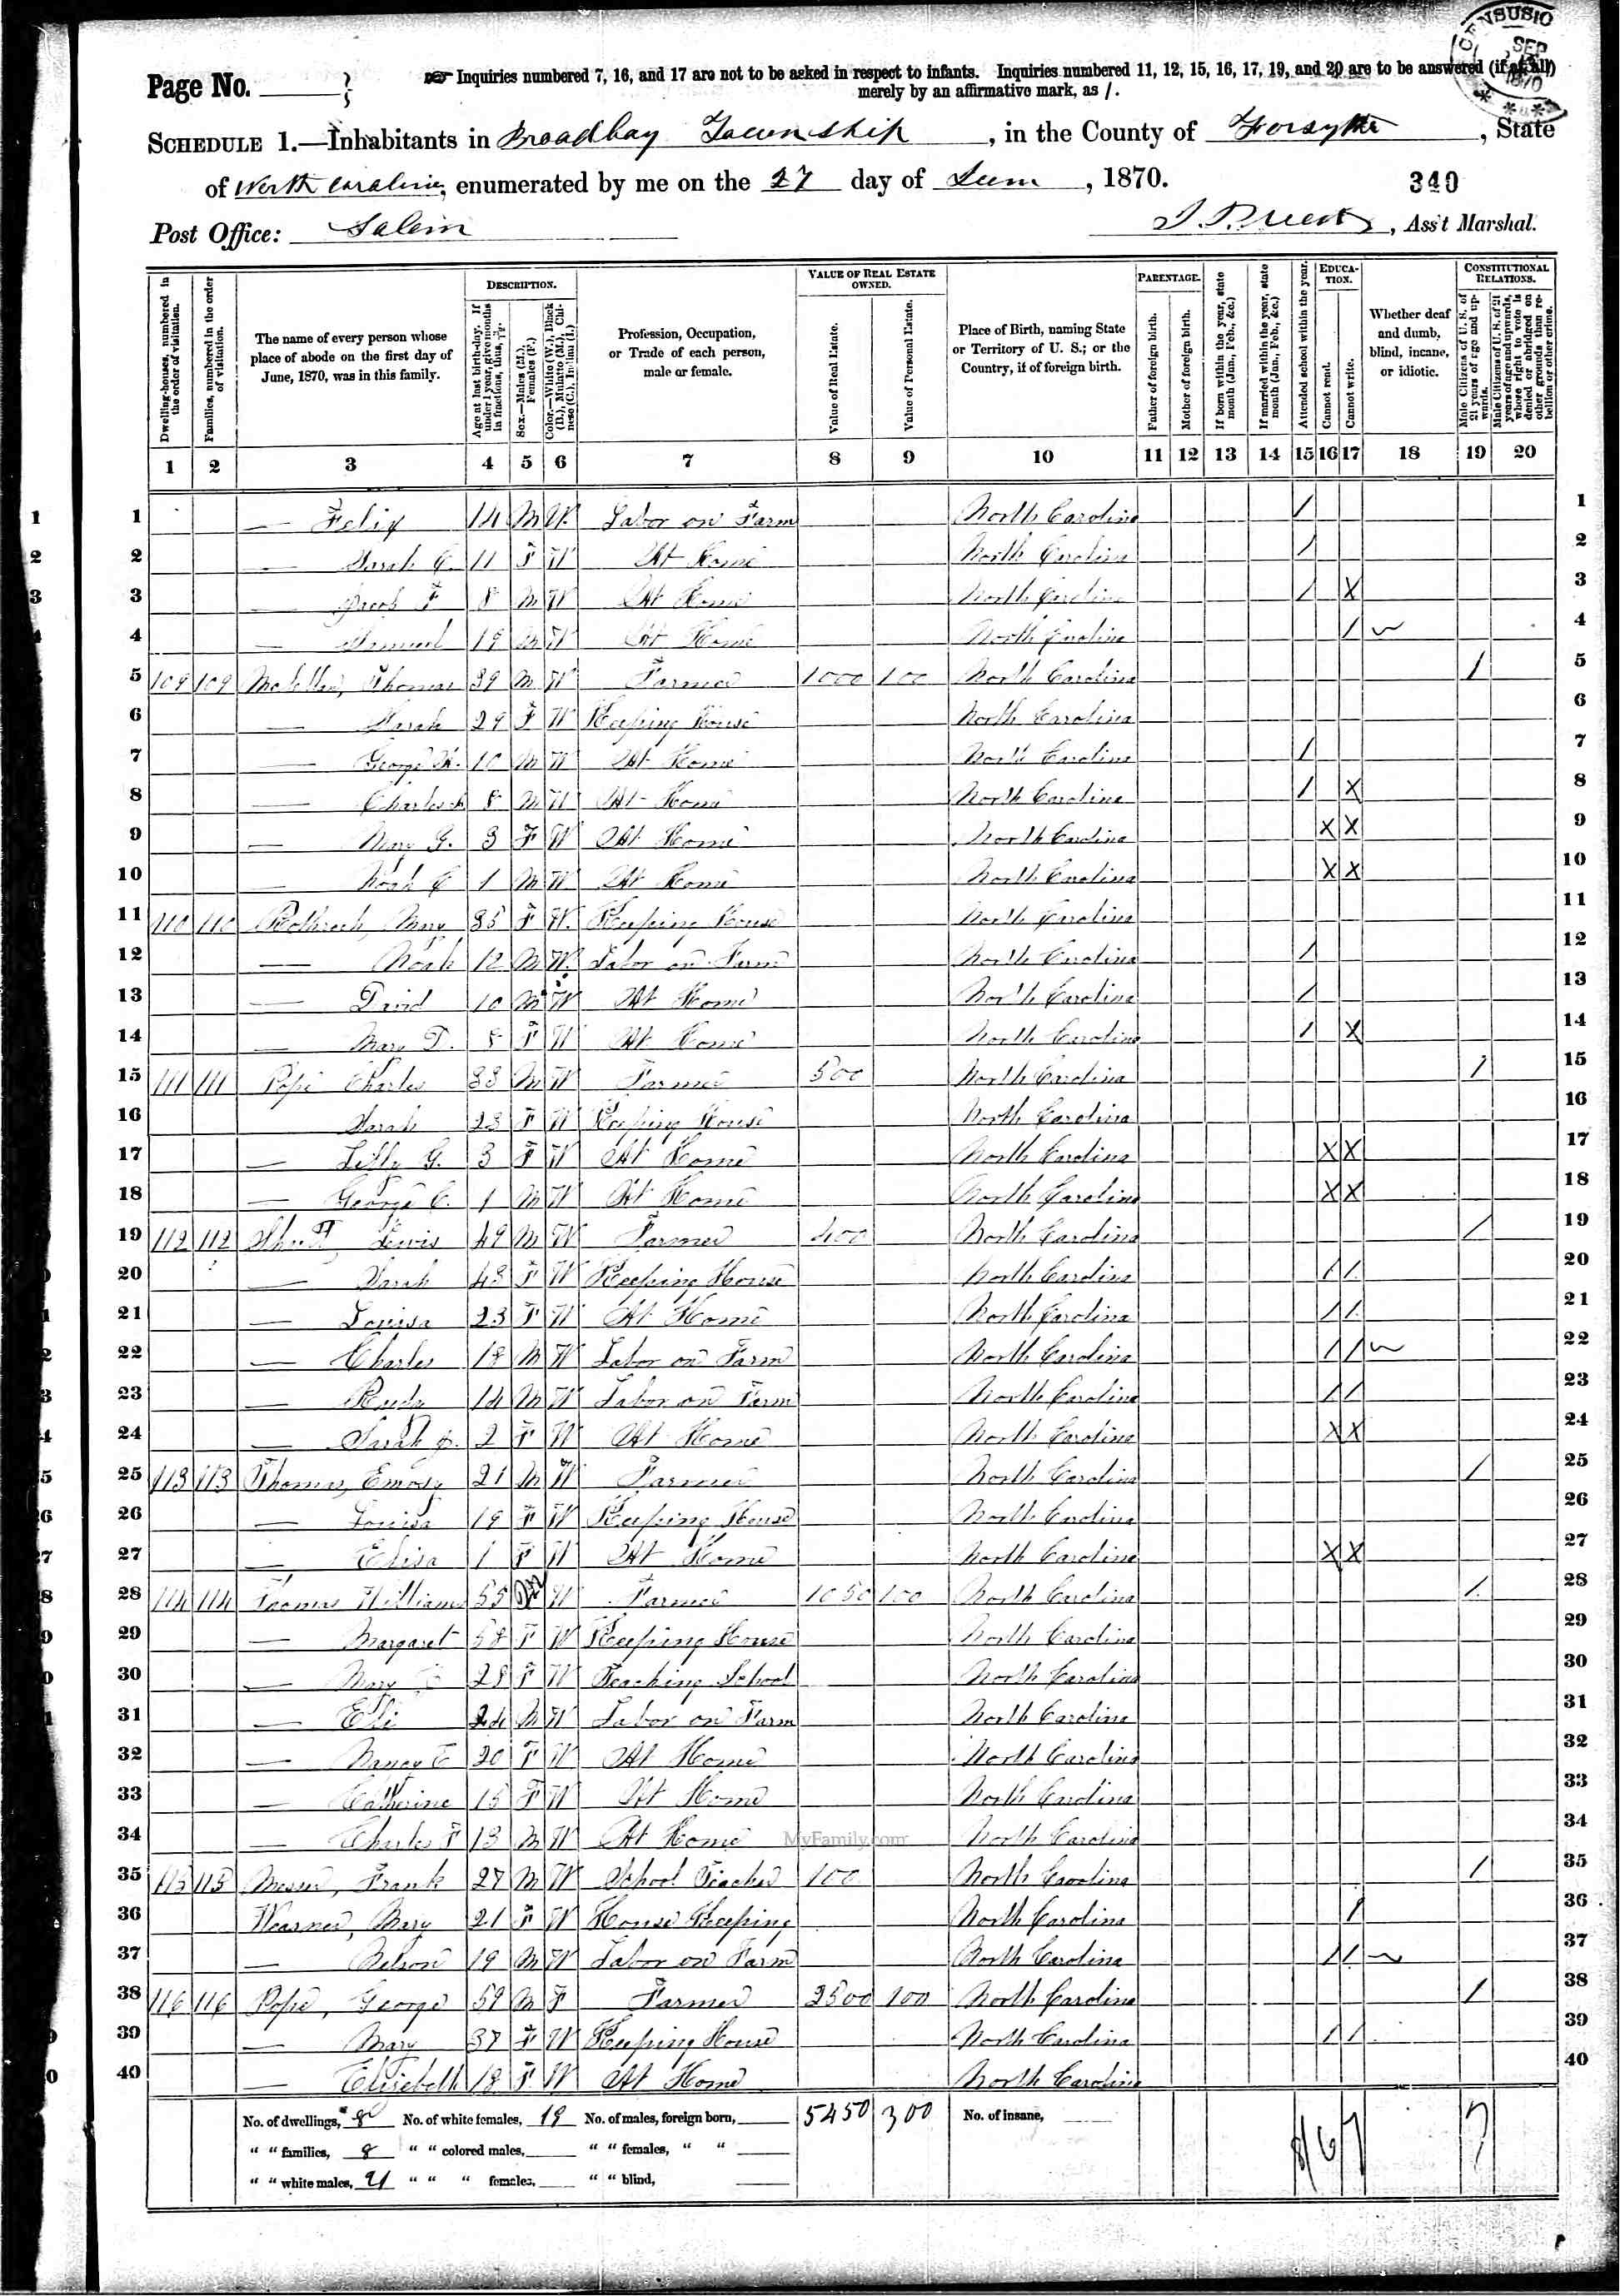 CENSUS
SEP
1870
Page No.
Inquiries numbered 7, 16, and 17 are not to be asked in respect to infants. Inquiries numbered 11, 12, 15, 16, 17, 19, and 20 are to be answered (if at all)
merely by an affirmative mark, as /.
SCHEDULE 1.—Inhabitants in Broadbay Township, in the County of Forsythe, State
of North Carolina, enumerated by me on the 27 day of, 1870. 340
Post Office: Salem, Ass't Marshal.
Dwelling-houses, numbered in the order of visitation.
Families, numbered in the order of visitation.
The name of every person whose place of abode on the first day of June, 1870, was in this family.
DESCRIPTION.
Age at last birth-day. If under 1 year, give months in fractions, thus,
Sex.—Males (M.), Females (F.)
Color.—White (W.), Black (B.), Mulatto (M.), Chinese (C.), Indian (I.)
Profession, Occupation, or Trade of each person, male or female.
VALUE OF REAL ESTATE OWNED.
Value of Real Estate.
Value of Personal Estate.
Place of Birth, naming State or Territory of U. S.; or the Country, if of foreign birth.
PARENTAGE.
Father of foreign birth.
Mother of foreign birth.
If born within the year, state month (Jan., Feb., &c.)
If married within the year, state month (Jan., Feb., &c.)
Attended school within the year.
EDUCATION.
Cannot read.
Cannot write.
Whether deaf and dumb, blind, insane, or idiotic.
CONSTITUTIONAL RELATIONS.
Male Citizens of U. S. of 21 years of age and upwards.
Male Citizens of U. S. of 21 years of age and upwards, whose right to vote is denied or abridged on other grounds than rebellion or other crime.
1 2 3 4 5 6 7 8 9 10 11 12 13 14 15 16 17 18 19 20
1 — Felix 14 M W. Labor on Farm North Carolina / 1
2 — Sarah C. 11 F W At Home North Carolina / 2
3 — Jacob F 8 M W At Home North Carolina / X 3
4 — Samuel 19 M W At Home North Carolina / 4
5 109 109 Thomas 39 M W Farmer 1000 100 North Carolina / 5
6 — Sarah 29 F W Keeping House North Carolina 6
7 — George 10 M W At Home North Carolina / 7
8 — Charles 8 M W At Home North Carolina / X 8
9 — Mary G. 3 F W At Home North Carolina X X 9
10 — Noah C 1 M W At Home North Carolina X X 10
11 110 110 Rothrock, Mary 35 F W. Keeping House North Carolina 11
12 — Noah 12 M W. Labor on Farm North Carolina / 12
13 — David 10 M W At Home North Carolina / 13
14 — Mary 8 F W At Home North Carolina / X 14
15 111 111 Pope Charles 33 M W Farmer 500 North Carolina / 15
16 Sarah 23 F W Keeping House North Carolina 16
17 — G. 3 F W At Home North Carolina X X 17
18 — George C. 1 M W At Home North Carolina X X 18
19 112 112 Lewis 49 M W Farmer 400 North Carolina / 19
20 — Sarah 43 F W Keeping House North Carolina / / 20
21 — Louisa 23 F W At Home North Carolina / / 21
22 — Charles 18 M W Labor on Farm North Carolina / / 22
23 — 14 M W Labor on Farm North Carolina / / 23
24 — Sarah J. 2 F W At Home North Carolina X X 24
25 113 113 Thomas, Emory 21 M W Farmer North Carolina / 25
26 — Louisa 19 F W Keeping House North Carolina 26
27 — Elisa 1 F W At Home North Carolina X X 27
28 114 114 Thomas William 55 M W Farmer 1050 100 North Carolina / 28
29 — Margaret 58 F W Keeping House North Carolina 29
30 — Mary 28 F W Teaching School North Carolina 30
31 — Eli 24 M W Labor on Farm North Carolina 31
32 — Nancy E 20 F W At Home North Carolina 32
33 — Catherine 15 F W At Home North Carolina 33
34 — Charles F 13 M W At Home North Carolina 34
MyFamily.com
35 115 115 Frank 27 M W School Teacher 100 North Carolina / 35
36 Mary 21 F W House Keeping North Carolina / 36
37 — Nelson 19 M W Labor on Farm North Carolina / / 37
38 116 116 Pope, George 59 M F Farmer 2500 100 North Carolina / 38
39 — Mary 37 F W Keeping House North Carolina / / 39
40 — Elizabeth 18 F W At Home North Carolina 40
No. of dwellings, 8 No. of white females, 19 No. of males, foreign born, 5450 300 No. of insane,
" " families, 8 " " colored males, " " females, " "
" " white males, 21 " " " females, " " blind,